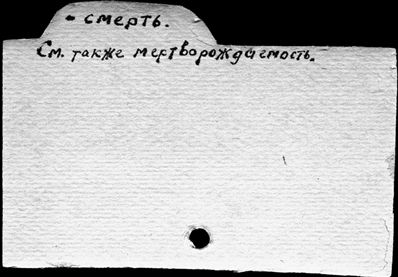 - смерть.
См. также мертворождаемость.